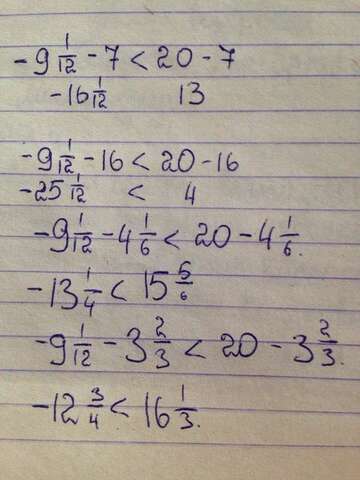 -9 1/12 - 7 < 20 - 7
-16 1/12 13
-9 1/12 - 16 < 20 - 16
-25 1/12 < 4
-9 1/12 - 4 1/6 < 20 - 4 1/6.
-13 1/4 < 15 5/6
-9 1/12 - 3 2/3 < 20 - 3 2/3.
-12 3/4 < 16 1/3.